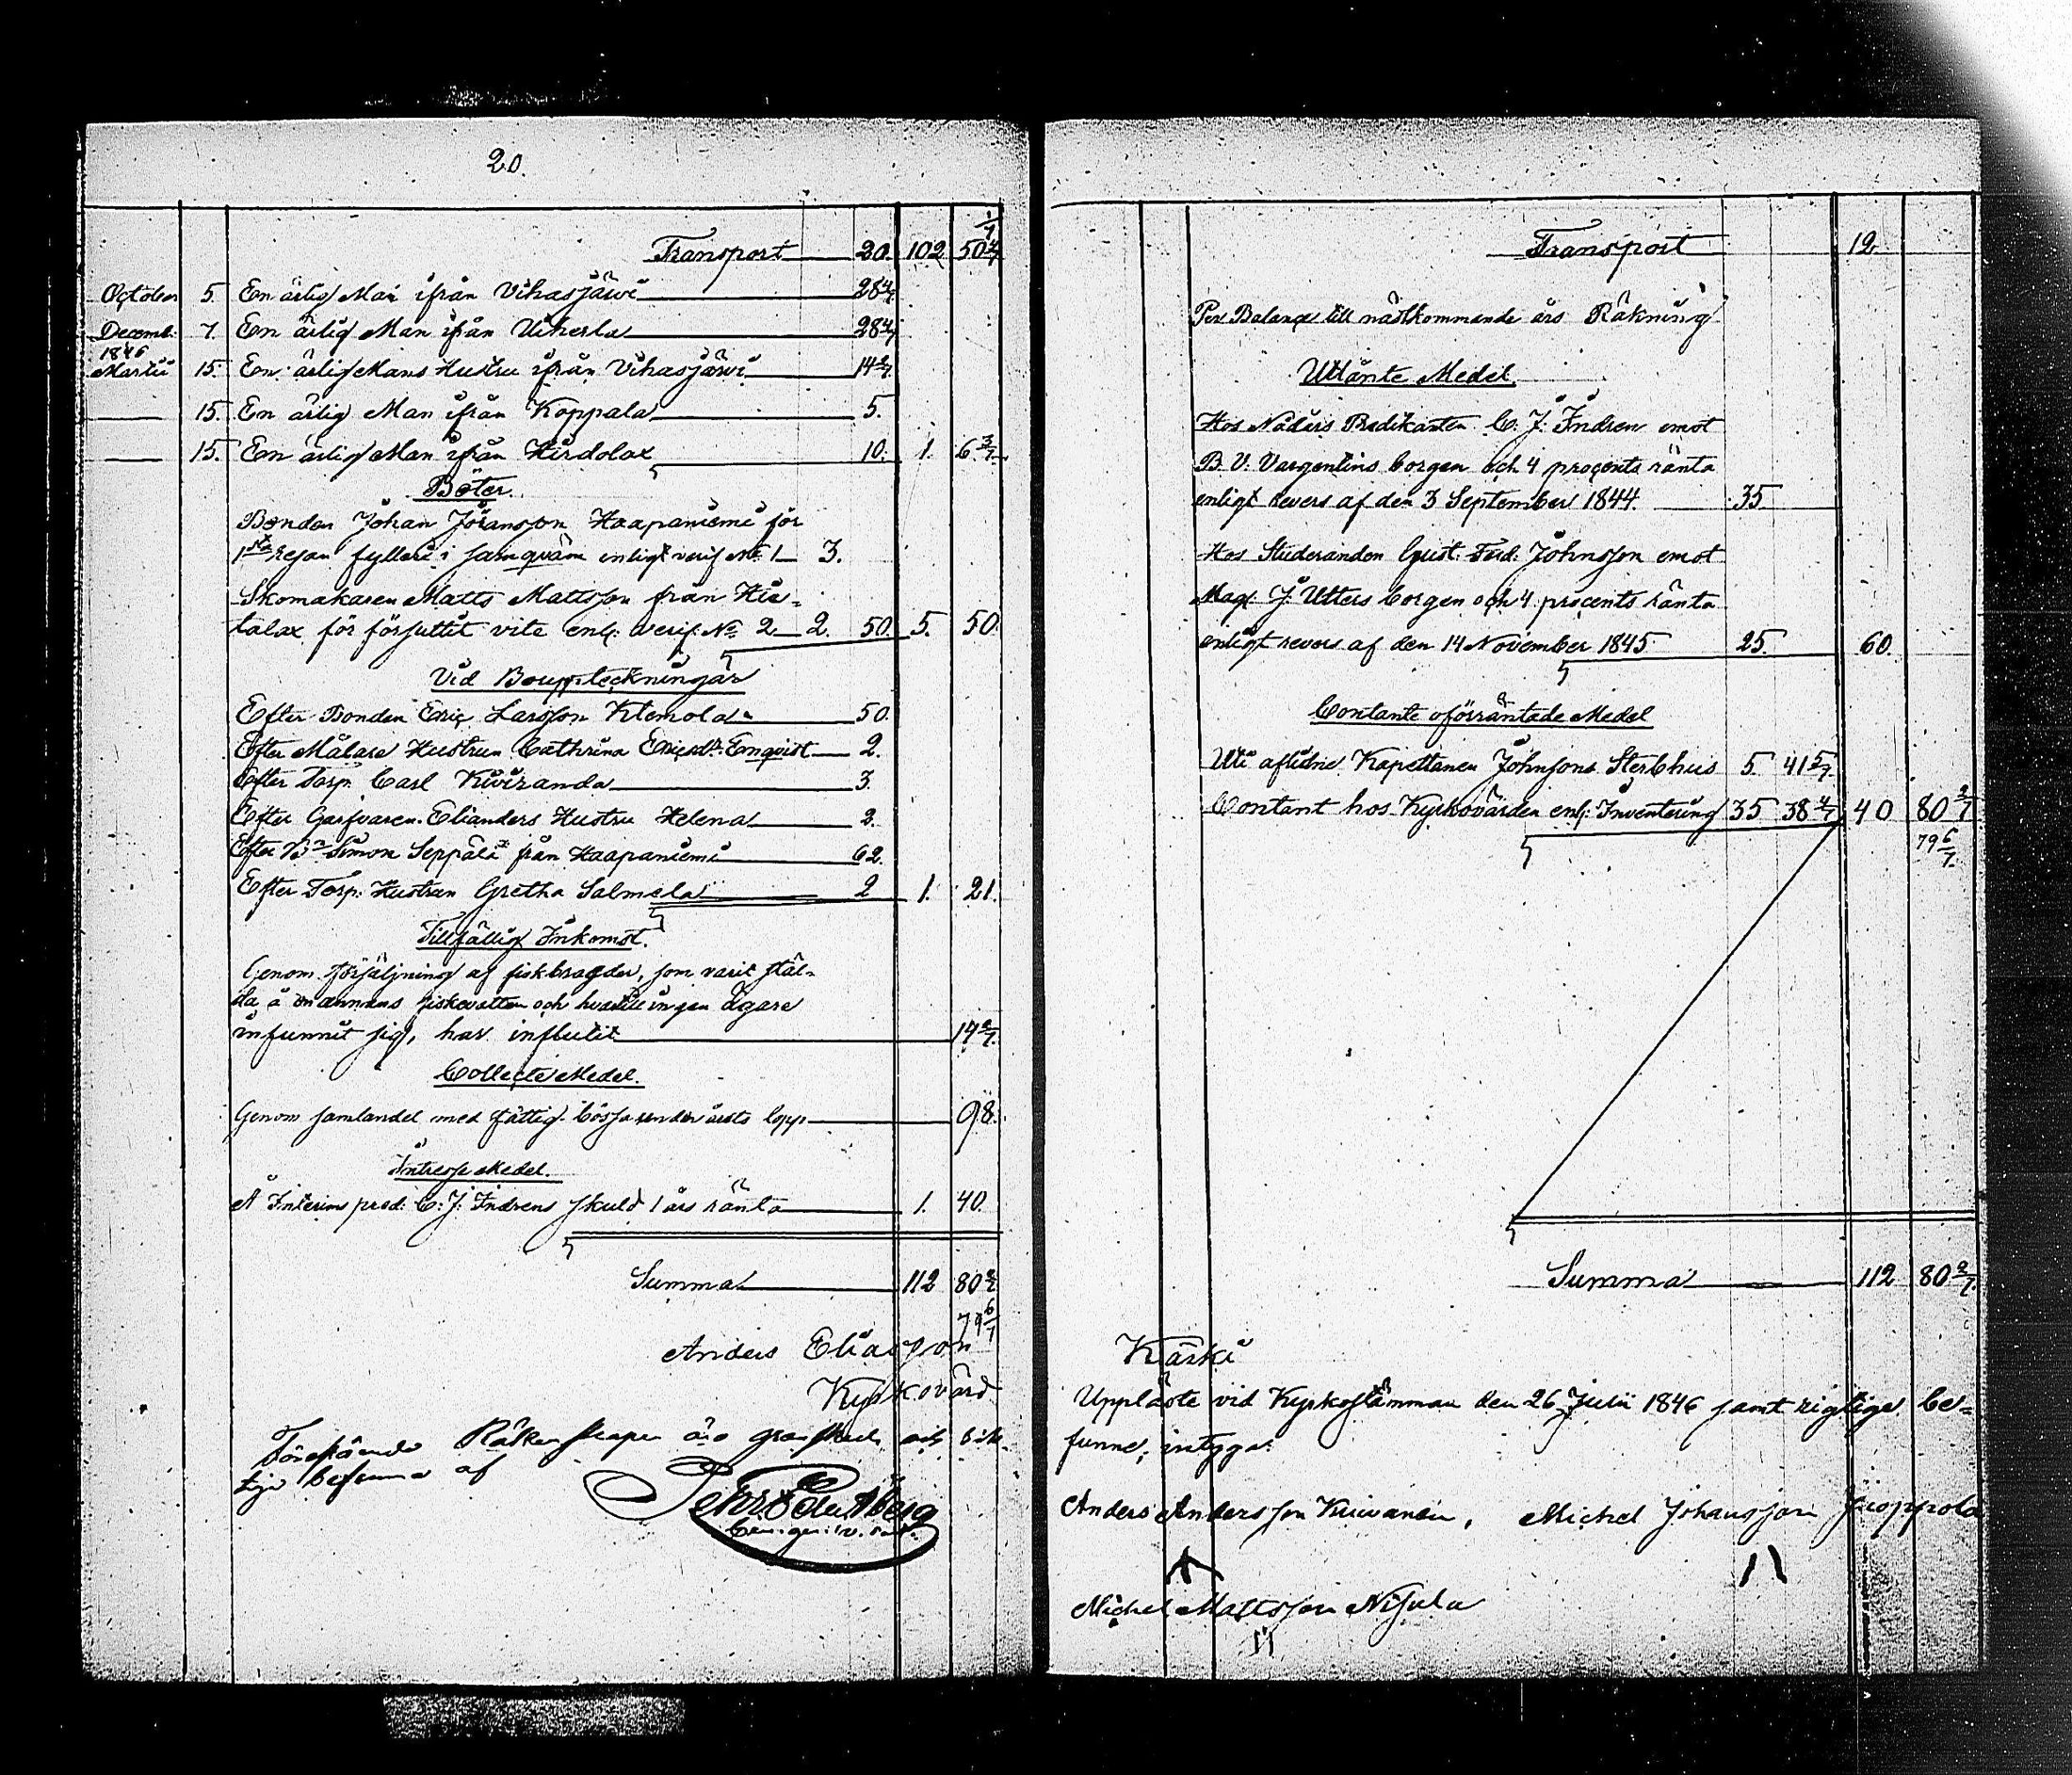 20.
Transport 20. 102 50 4/7 1/7
October 5. En ärlig Man ifrån Vihasjärvi 28 4/7
Decemb. 7. En ärlig Man ifrån Uiherla 28 4/7
1846
Martii 15. En ärlig Mans Hustru ifrån Vihasjärvi 14 2/7
15. En ärlig Man ifrån Koppala 5.
15. En ärlig Man ifrån Hirdolax 10. 1. 6 3/7
Böter.
Bonden Johan Jöransson Haapaniemi för
1sta resan fylleri i samqväm enligt verif No 1 3.
Skomakaren Matts Mattsson från Hie-
talax för försuttit vite enl: verif: No 2 2. 50. 5. 50.
Vid Bouppteckningar
Efter Bonden Eric Larsson Klemola 50.
Efter Målare Hustrun Cathrina Ericsdr Emqvist 2.
Efter Torp. Carl Kiviranda 3.
Efter Garfvaren Elianders Hustru Helena 2.
Efter Bn Simon Seppälä från Haapaniemi 62.
Efter Torp. Hustrun Gretha Salmela 2 1. 21.
Tillfällig Inkomst.
Genom försäljning af fiskbragder, som varit stäl-
da å en annans fiskevatten och hvartill ingen ägare
infunnit sig, har influtit 14 2/7
Collecte Medel.
Genom samlandet med fattig-bössa under årets lopp 98.
Intresse Medel.
Å Interims pred: C. J. Indrens skuld 1 års ränta 1. 40.
Summa 112 80 2/7
79 6/7
Anders Eliasson
Kyrkovärd
Förestående Räkenskaper äro granskade och rik-
tige befunne af
Transport 12.
Per Balance till nästkommande års Räkning
Utlänte Medel.
Hos Nådårs Predikanten C. J. Indren emot
B. V. Vargentins borgen och 4 procents ränta
enligt revers af den 3 September 1844. 35
Hos Studeranden Gust. Ferd. Johnsson emot
Mag. J. Utters borgen och 4 procents ränta
enligt revers af den 14 November 1845 25. 60.
Contante oförräntade Medel
Uti aflidne Kapettanen Johnsons Sterbhus 5. 41 5/7
Contant hos Kyrkovärden enl: Inventering 35 38 4/7 40 80 2/7
79 6/7
Summa 112 80 2/7
Karki
Uppläste vid Kyrkostämman den 26 Julii 1846 samt rigtige be-
funne, intyga:
Anders Andersson Kuivanen, Michel Johansson
Michel Mattsson Nisula